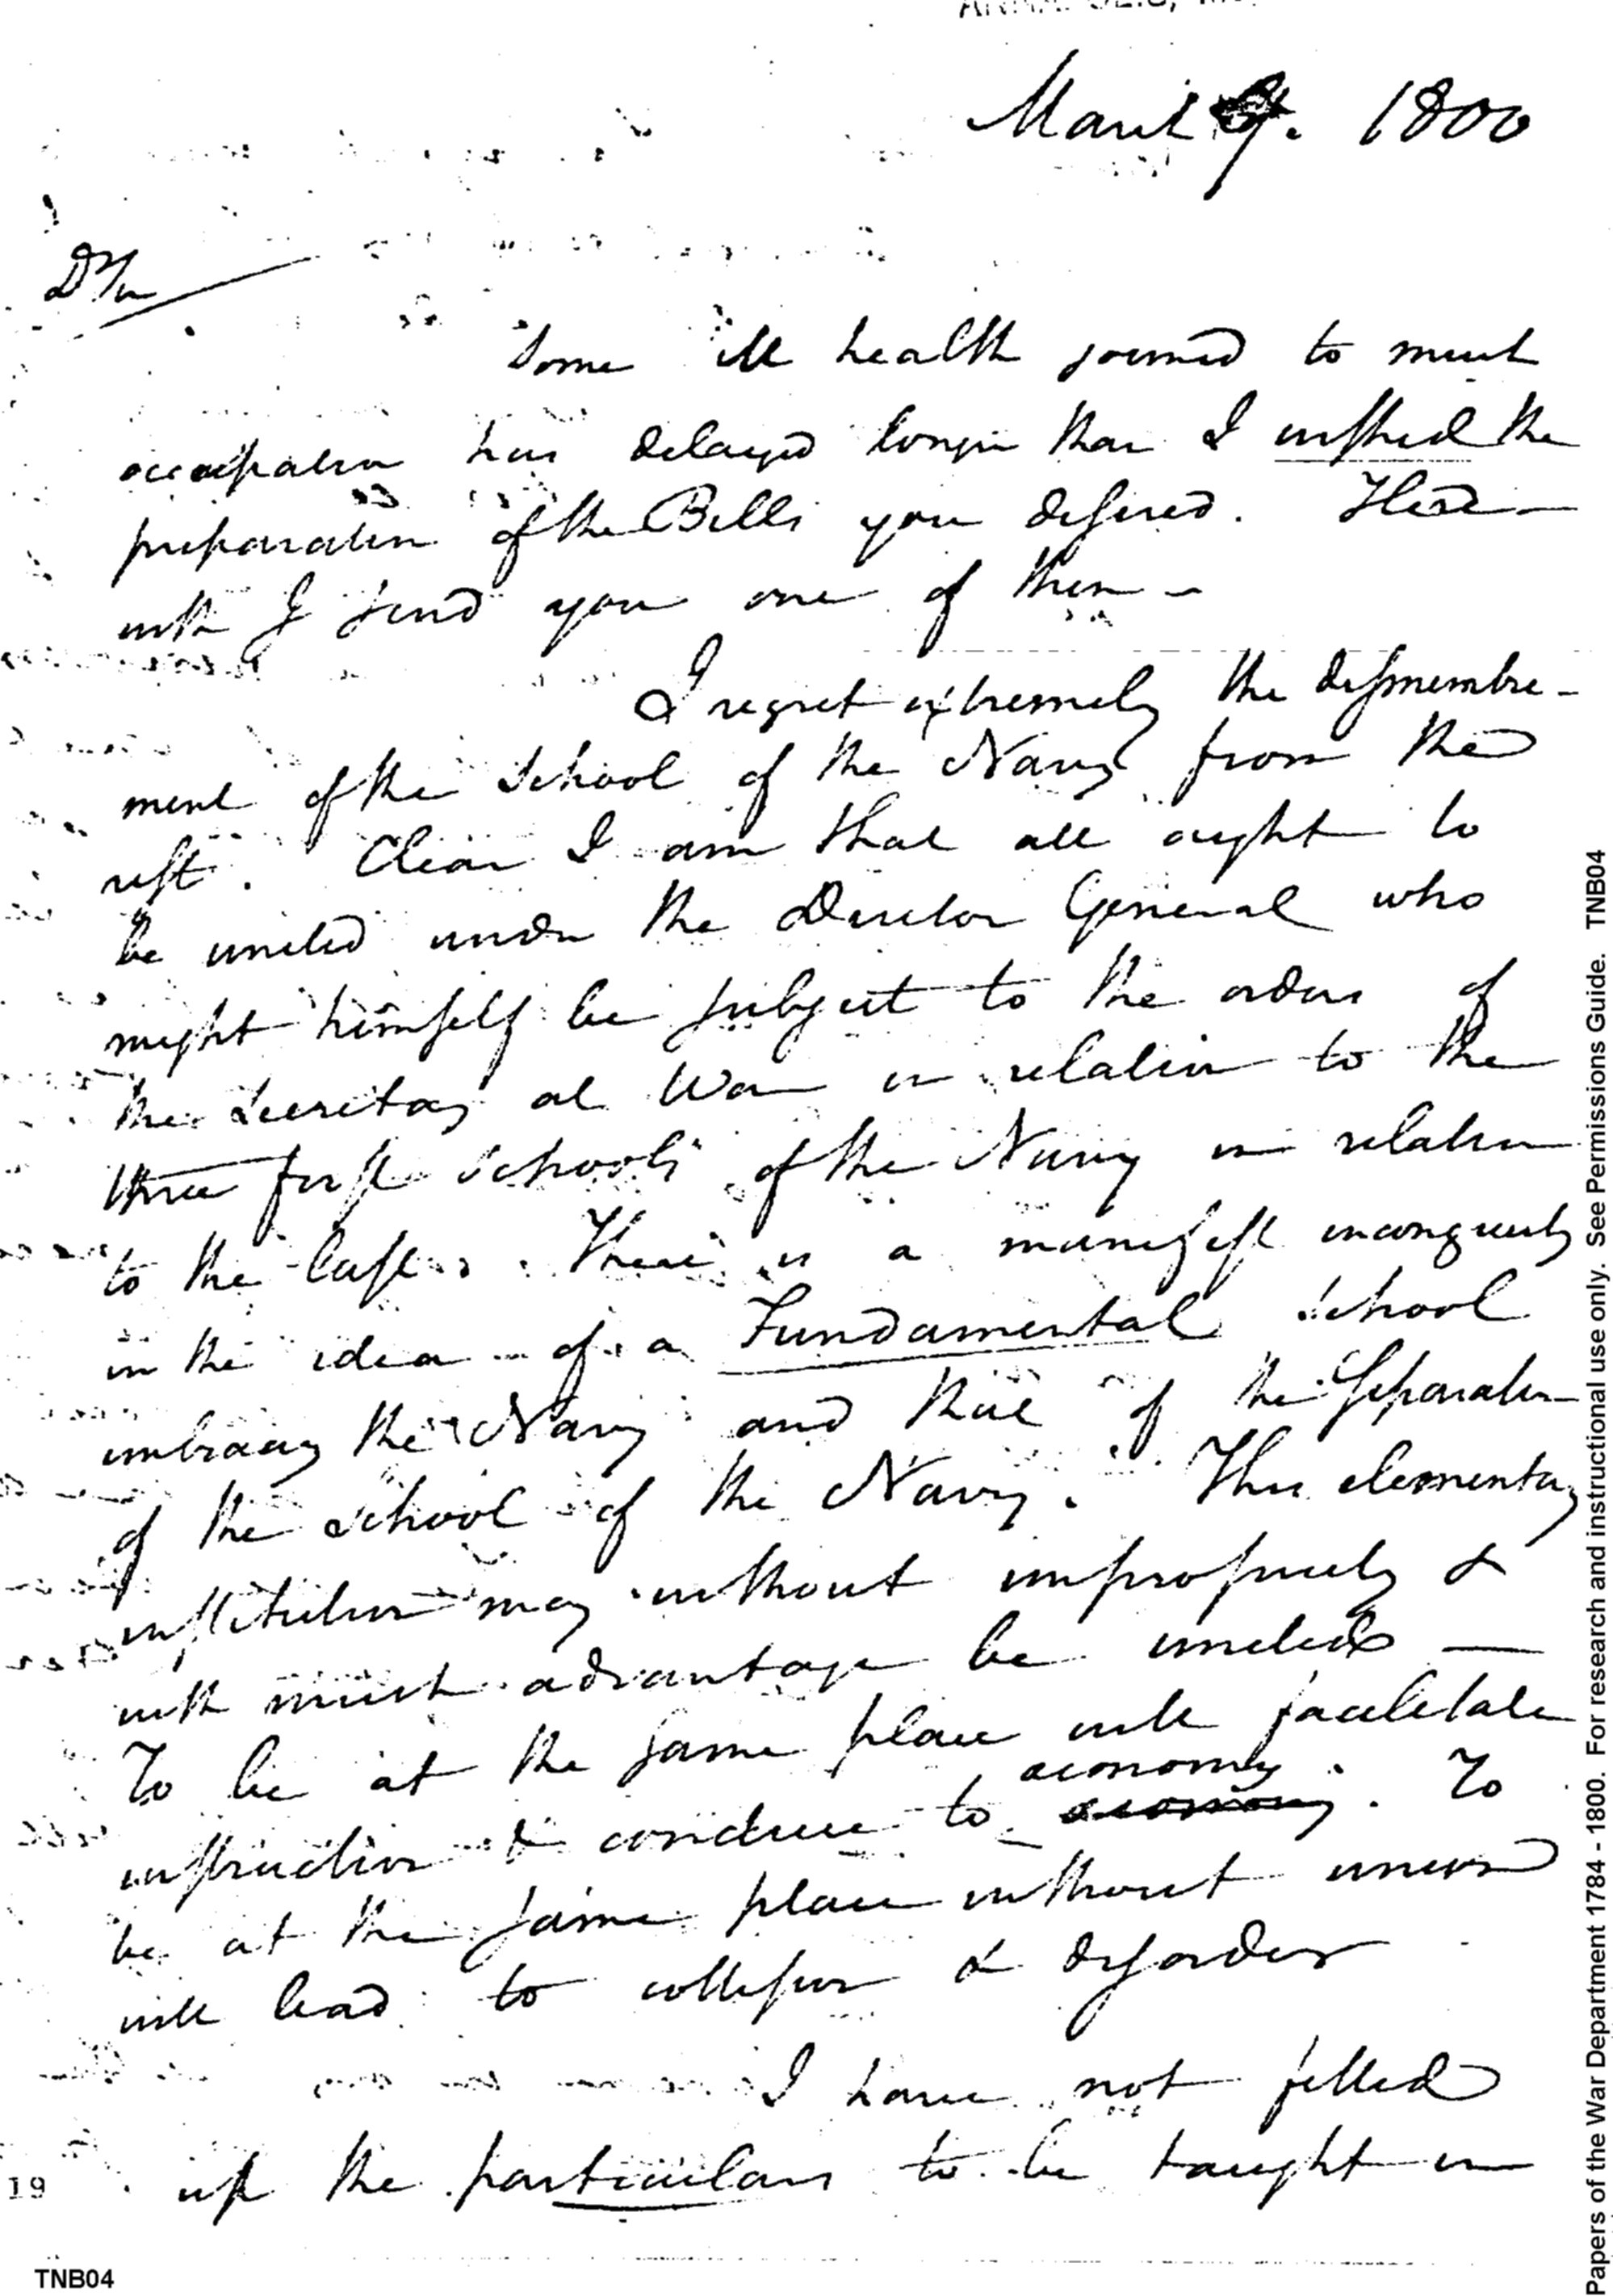 March 9. 1800
D Sir
Some ill health joined to much
occupation has delayed longer than I wished the
preparation of the Bills you desired. Here-
with I send you one of them –
I regret extremely the dismembre-
ment of the School of the Navy from the
rest. Clear I am that all ought to
be united under the Director General who
might himself be subject to the orders of
the Secretary at War in relation to the
three first schools of the Navy in relation
to the last. There is a manifest incongruity
in the idea of a Fundamental School
embracing the Navy and that of the Separation
of the School of the Navy. The elementary
institution may without impropriety &
with much advantage be united —
To be at the same place will facilitate
instruction & conduce to œconomy. To
be at the same place without union
will lead to collision & disorder
I have not filled
up the particulars to be taught in
19
TNB04
Papers of the War Department 1784 - 1800. For research and instructional use only. See Permissions Guide. TNB04